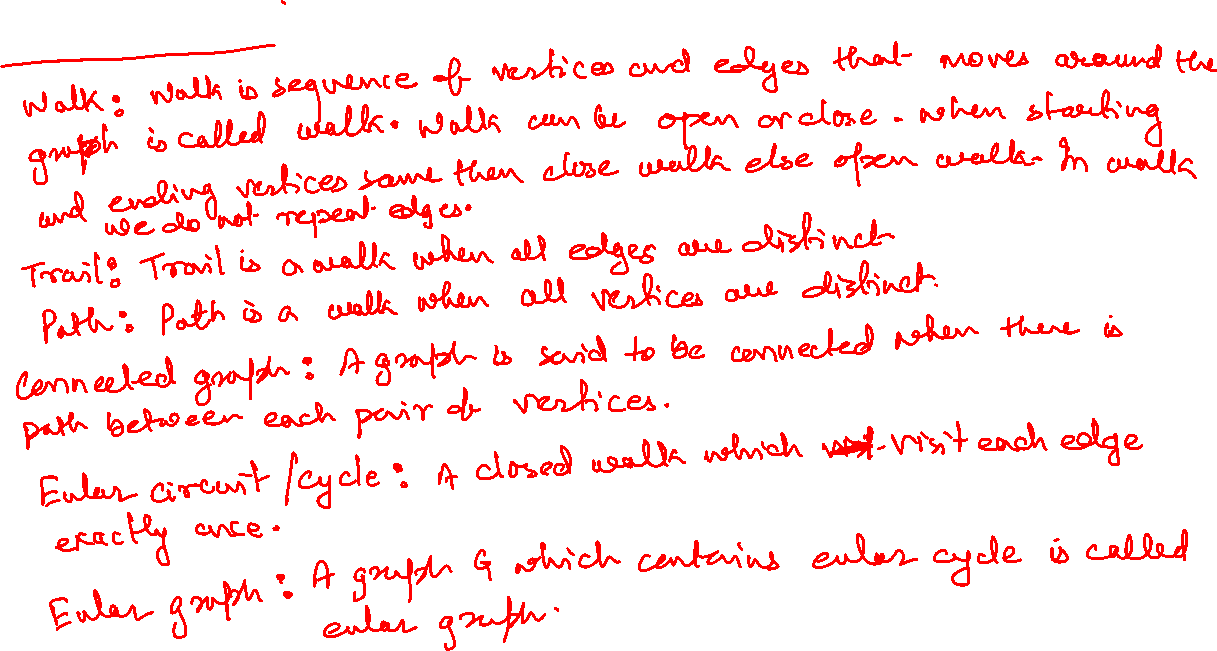 Walk: Walk is sequence of vertices and edges that moves around the
graph is called walk. Walk can be open or close. When starting
and ending vertices same then close walk else open walk. In walk
we do not repeat edges.
Trail: Trail is a walk when all edges are distinct
Path: Path is a walk when all vertices are distinct.
Connected graph: A graph is said to be connected when there is
path between each pair of vertices.
Eular circuit/cycle: A closed walk which visit each edge
exactly once.
Eular graph: A graph G which contains eular cycle is called
eular graph.